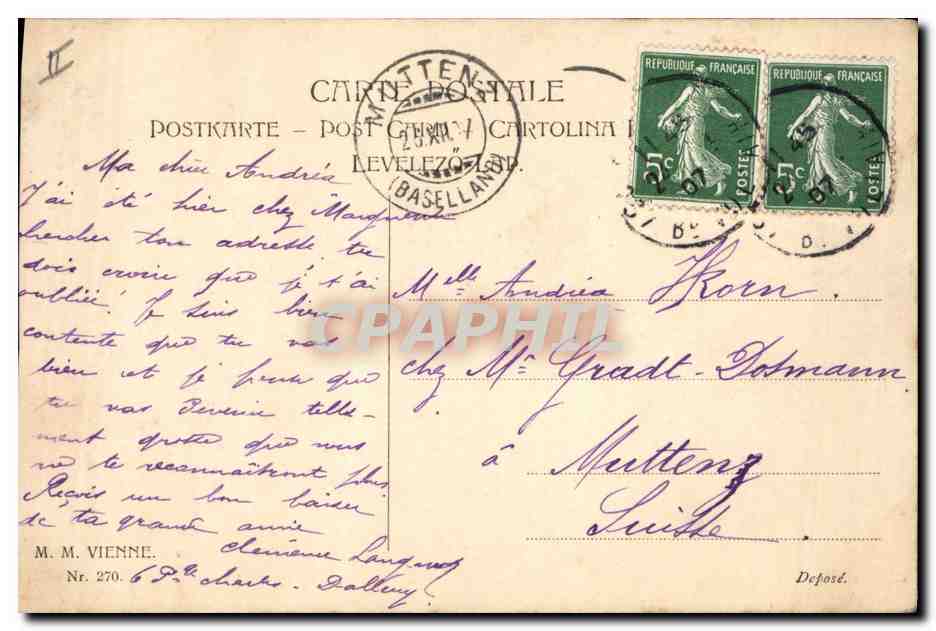 II
CARTE POSTALE
POSTKARTE – POST CARD CARTOLINA
LEVELEZŐ-LAP.
MUTTENZ
(BASELLAND)
REPUBLIQUE FRANÇAISE
5c
POSTES
REPUBLIQUE FRANÇAISE
5c
POSTES
Ma chère Andréa
J'ai été hier chez Marguerite
chercher ton adresse tu
dois croire que je t'ai
oublié! Je suis bien
contente que tu vas
bien et je pense que
tu vas devenir telle-
ment grosse que nous
ne te reconnaîtront plus
Reçois un bon baiser
de ta grande amie
Clémence
6 Charles Dallery
Melle Andréa Korn
chez Mr Gradt-Dosmann
à Muttenz
Suisse
CPAPHIL
M. M. VIENNE.
Nr. 270.
Deposé.